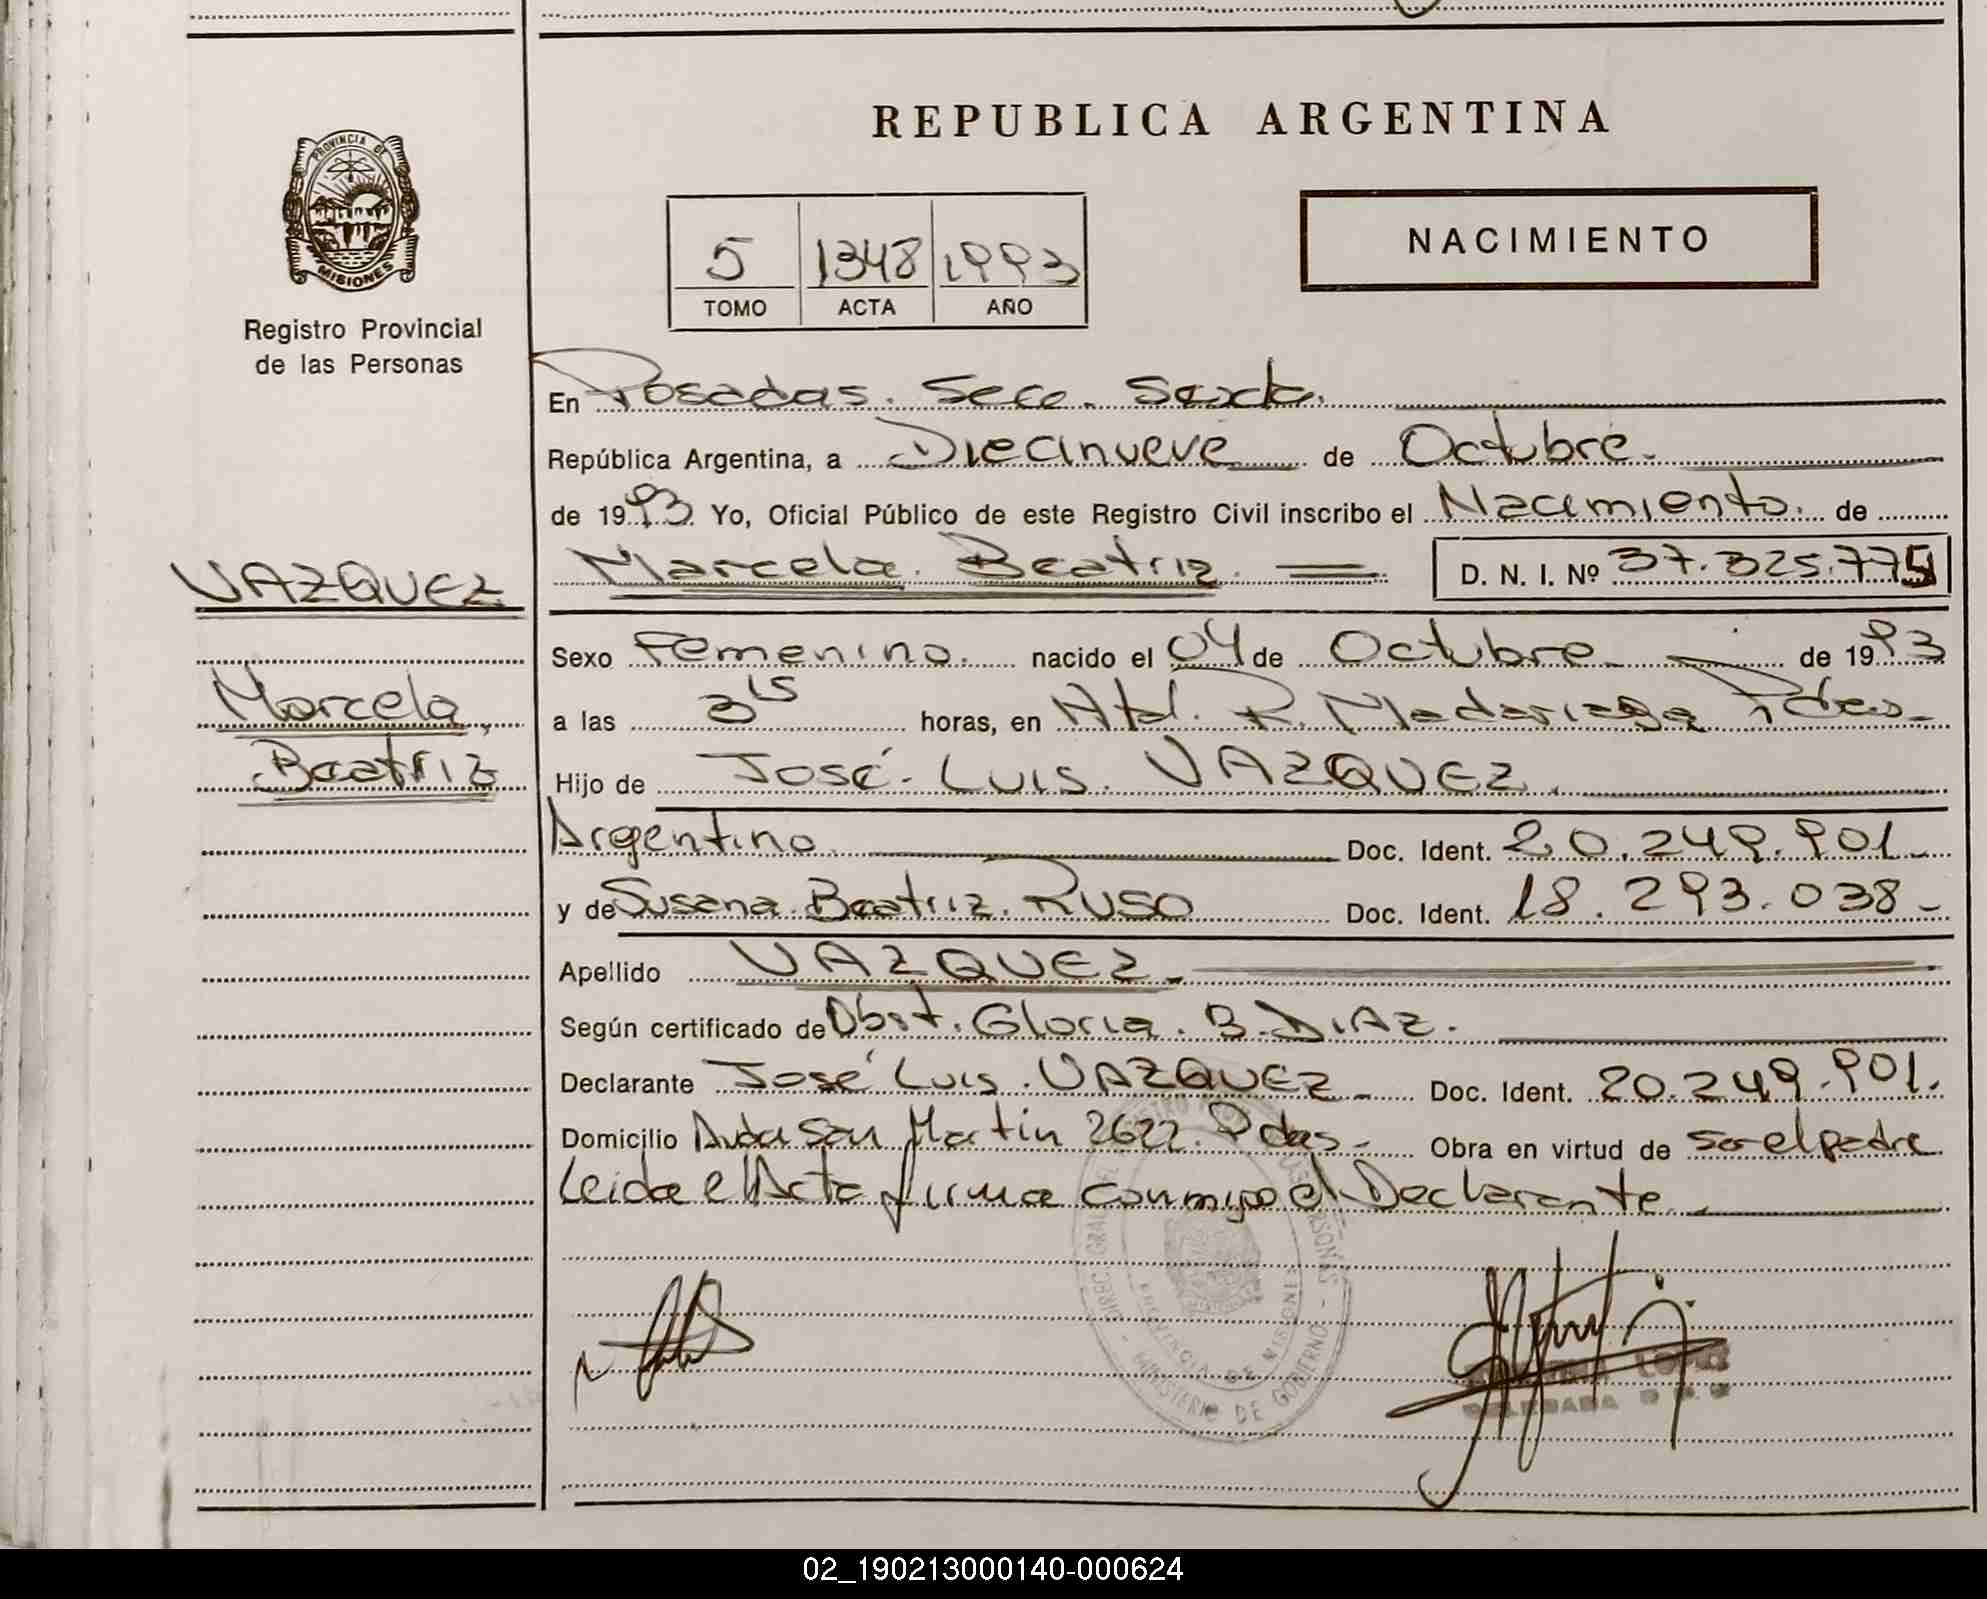 REPUBLICA ARGENTINA
PROVINCIA DE
MISIONES
Registro Provincial
de las Personas
5 1348 1993
TOMO ACTA AÑO
NACIMIENTO
En Posadas. Secc. Sexta.
República Argentina, a Diecinueve de Octubre.
de 1993. Yo, Oficial Público de este Registro Civil inscribo el Nacimiento. de
Marcela. Beatriz. D. N. I. Nº 37.325.775
VAZQUEZ
Marcela
Beatriz
Sexo Femenino. nacido el 04 de Octubre de 1993
a las 3 15 horas, en Htal. R. Madariaga Pdas.
Hijo de José Luis. VAZQUEZ.
Argentino Doc. Ident. 20.249.901.
y de Susana. Beatriz. RUSO Doc. Ident. 18.293.038-
Apellido VAZQUEZ.
Según certificado de Obst. Gloria. B. DIAZ.
Declarante José Luis. VAZQUEZ Doc. Ident. 20.249.901.
Domicilio Avda San Martin 2622. Pdas- Obra en virtud de ser el padre
Leida el Acta firma conmigo el Declarante.
PROVINCIA DE MISIONES
MINISTERIO DE GOBIERNO
DELEGADA
02_190213000140-000624